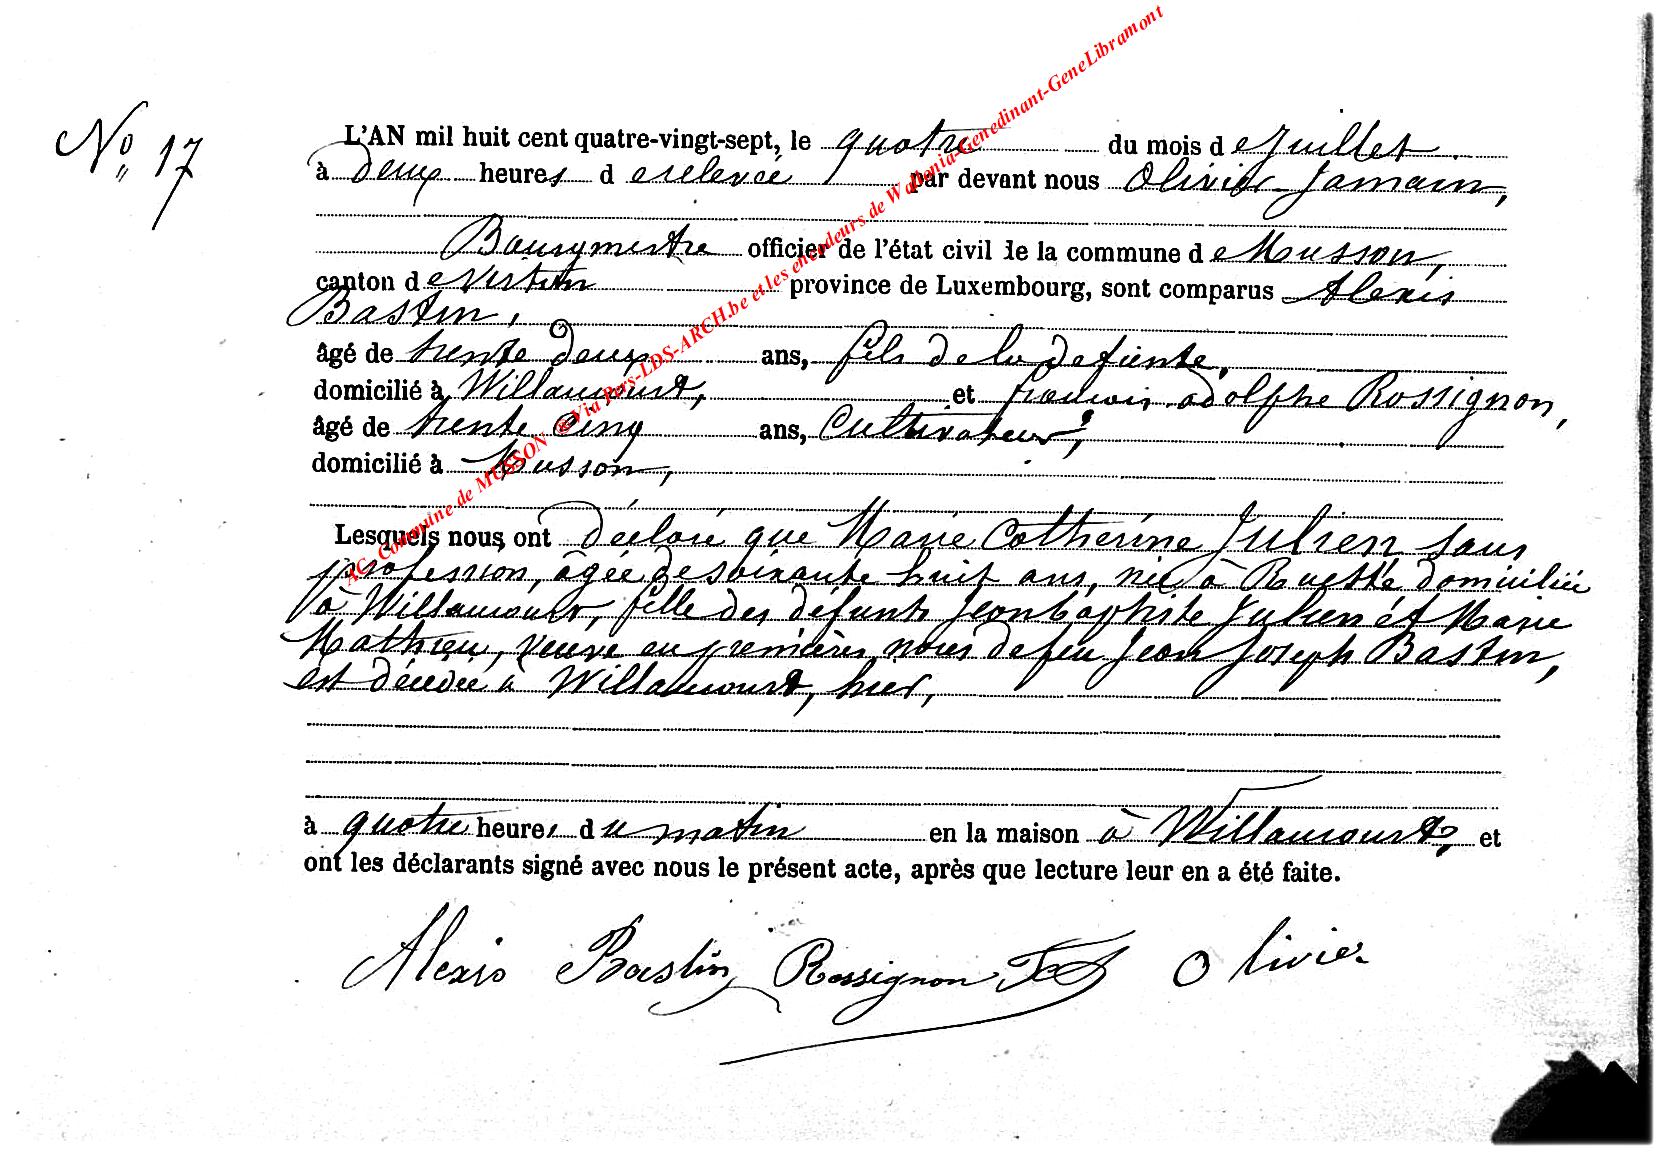 No 17
L'AN mil huit cent quatre-vingt-sept, le quatre du mois de Juillet
à deux heures de relevée par devant nous Olivier Jamain,
Bourgmestre officier de l'état civil de la commune de Musson,
canton de Virton province de Luxembourg, sont comparus Alexis
Bastin,
âgé de trente deux ans, fils de la défunte,
domicilié à Willancourt, et françois adolphe Rossignon,
âgé de trente cinq ans, Cultivateur,
domicilié à Musson,
Lesquels nous ont déclaré que Marie Catherine Julien sans
profession, âgée de soixante huit ans, née à Ruette domiciliée
à Willancourt, fille des défunts Jean baptiste Julien et Marie
Mathieu, veuve en premières noces de feu Jean Joseph Bastin,
est décédée à Willancourt, hier,
à quatre heures du matin en la maison à Willancourt, et
ont les déclarants signé avec nous le présent acte, après que lecture leur en a été faite.
Alexis Bastin Rossignon Olivier
AC. Commune de MUSSON @ Via Pers-LDS-ARCH.be et les encodeurs de Wallonia-Genedinant-GeneLibramont